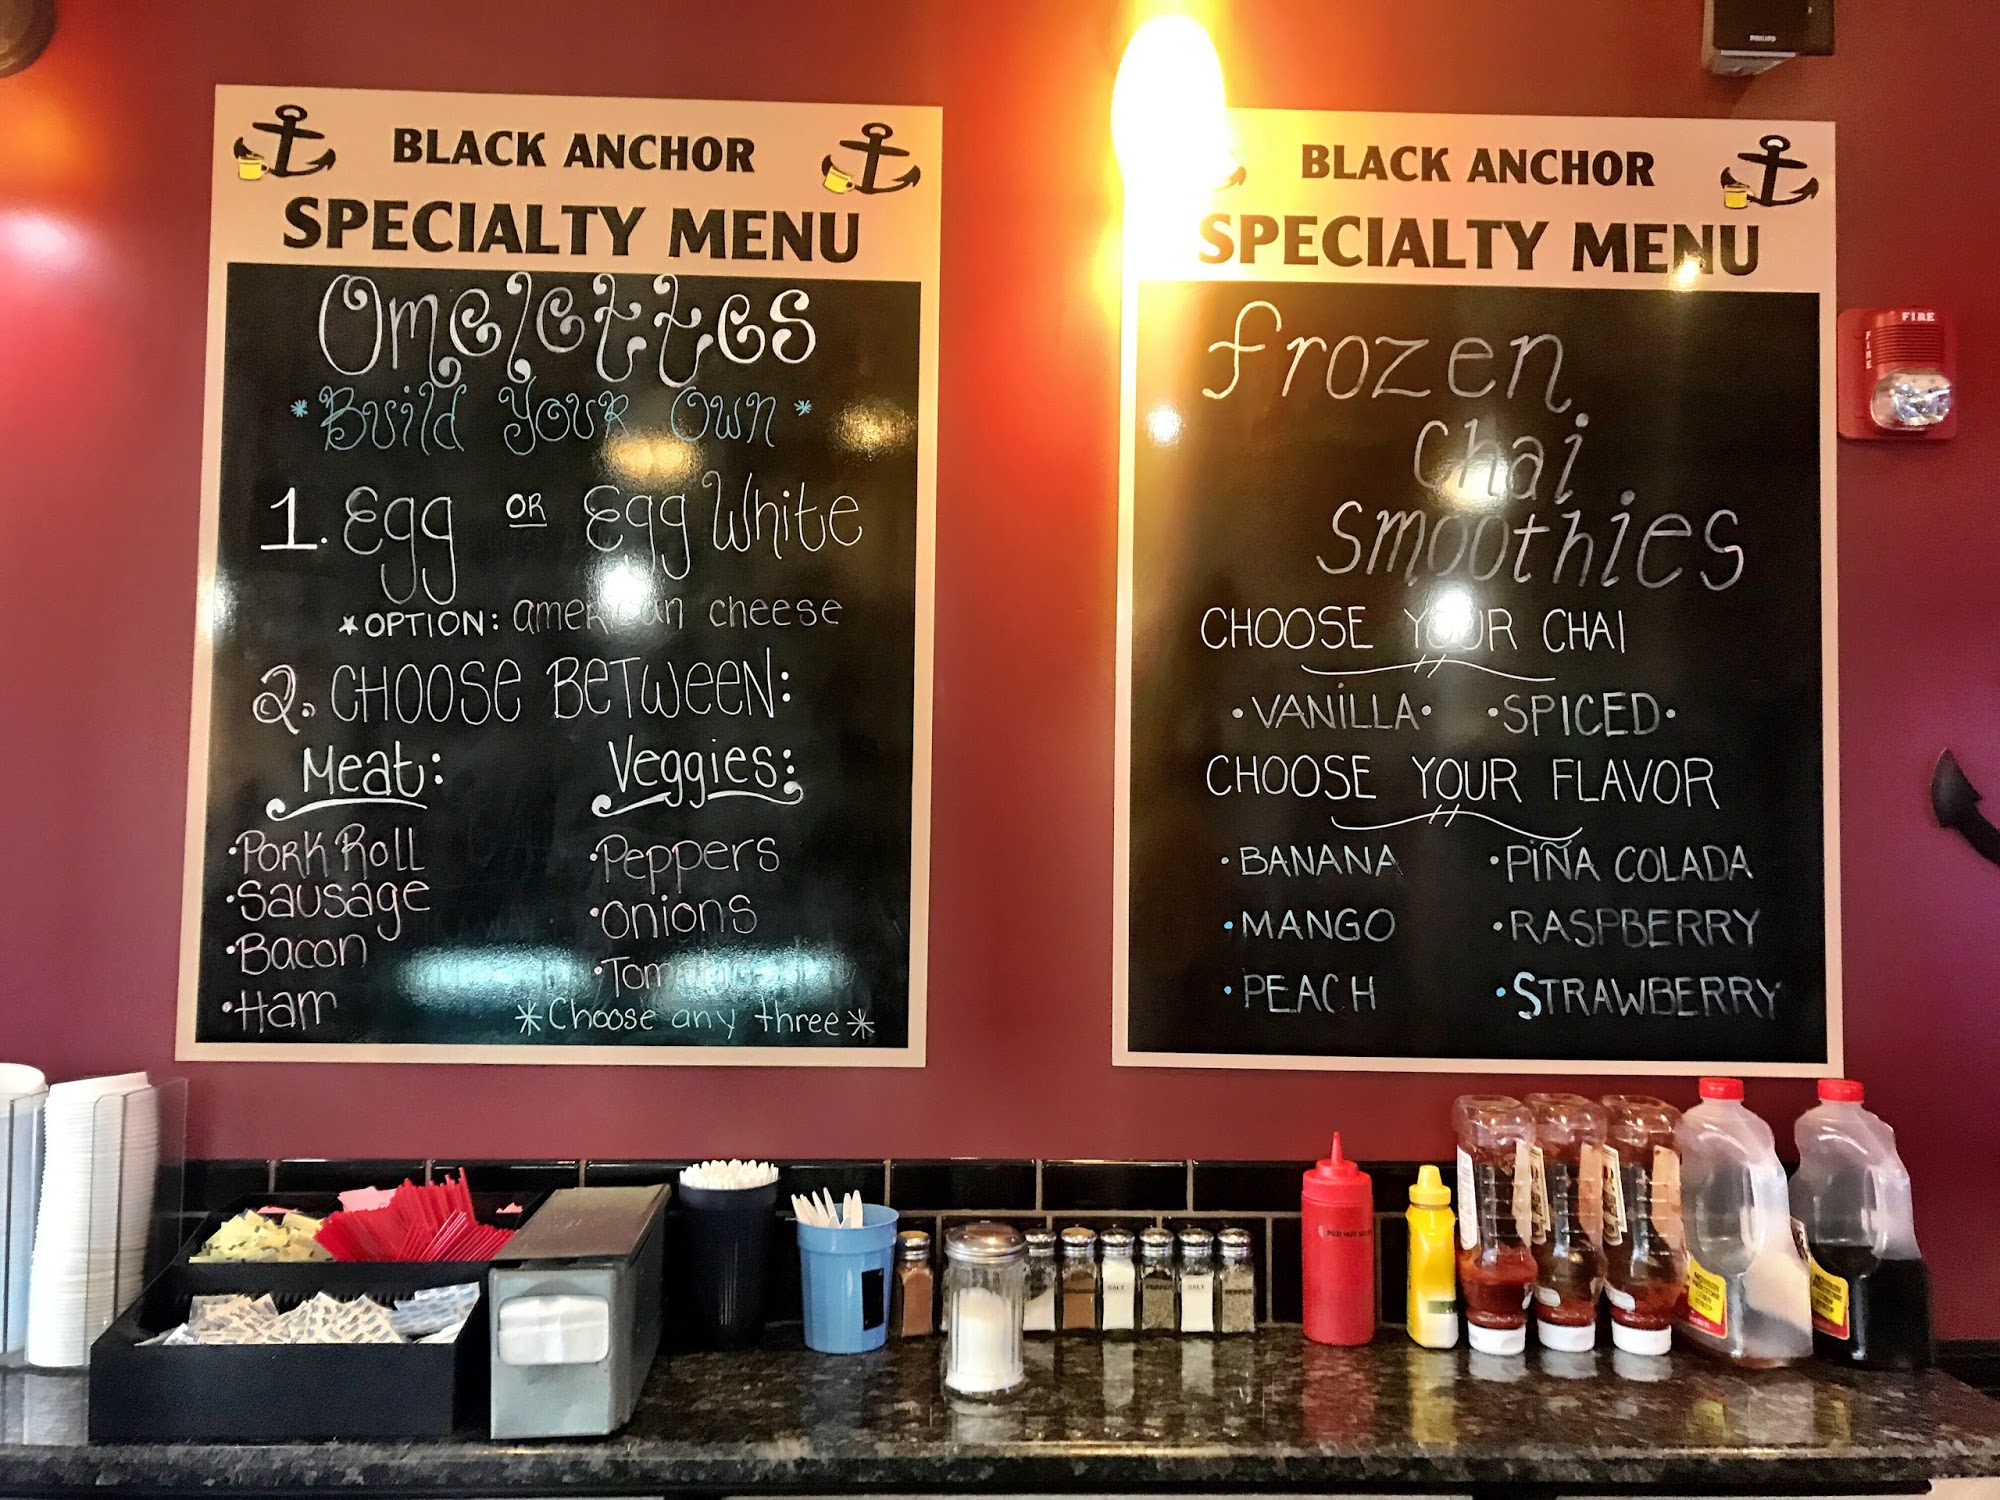 BLACK ANCHOR
SPECIALTY MENU
Omelettes
*Build Your Own*
1. Egg OR Egg White
*OPTION: american cheese
2. CHOOSE BETWEEN:
Meat:
•PORK ROLL
•Sausage
•Bacon
•Ham
Veggies:
•Peppers
•Onions
*Choose any three*
BLACK ANCHOR
SPECIALTY MENU
Frozen
Chai
Smoothies
CHOOSE YOUR CHAI
•VANILLA• •SPICED•
CHOOSE YOUR FLAVOR
•BANANA •PIÑA COLADA
•MANGO •RASPBERRY
•PEACH •STRAWBERRY
PHILIPS
FIRE
FIRE
SALT
SALT